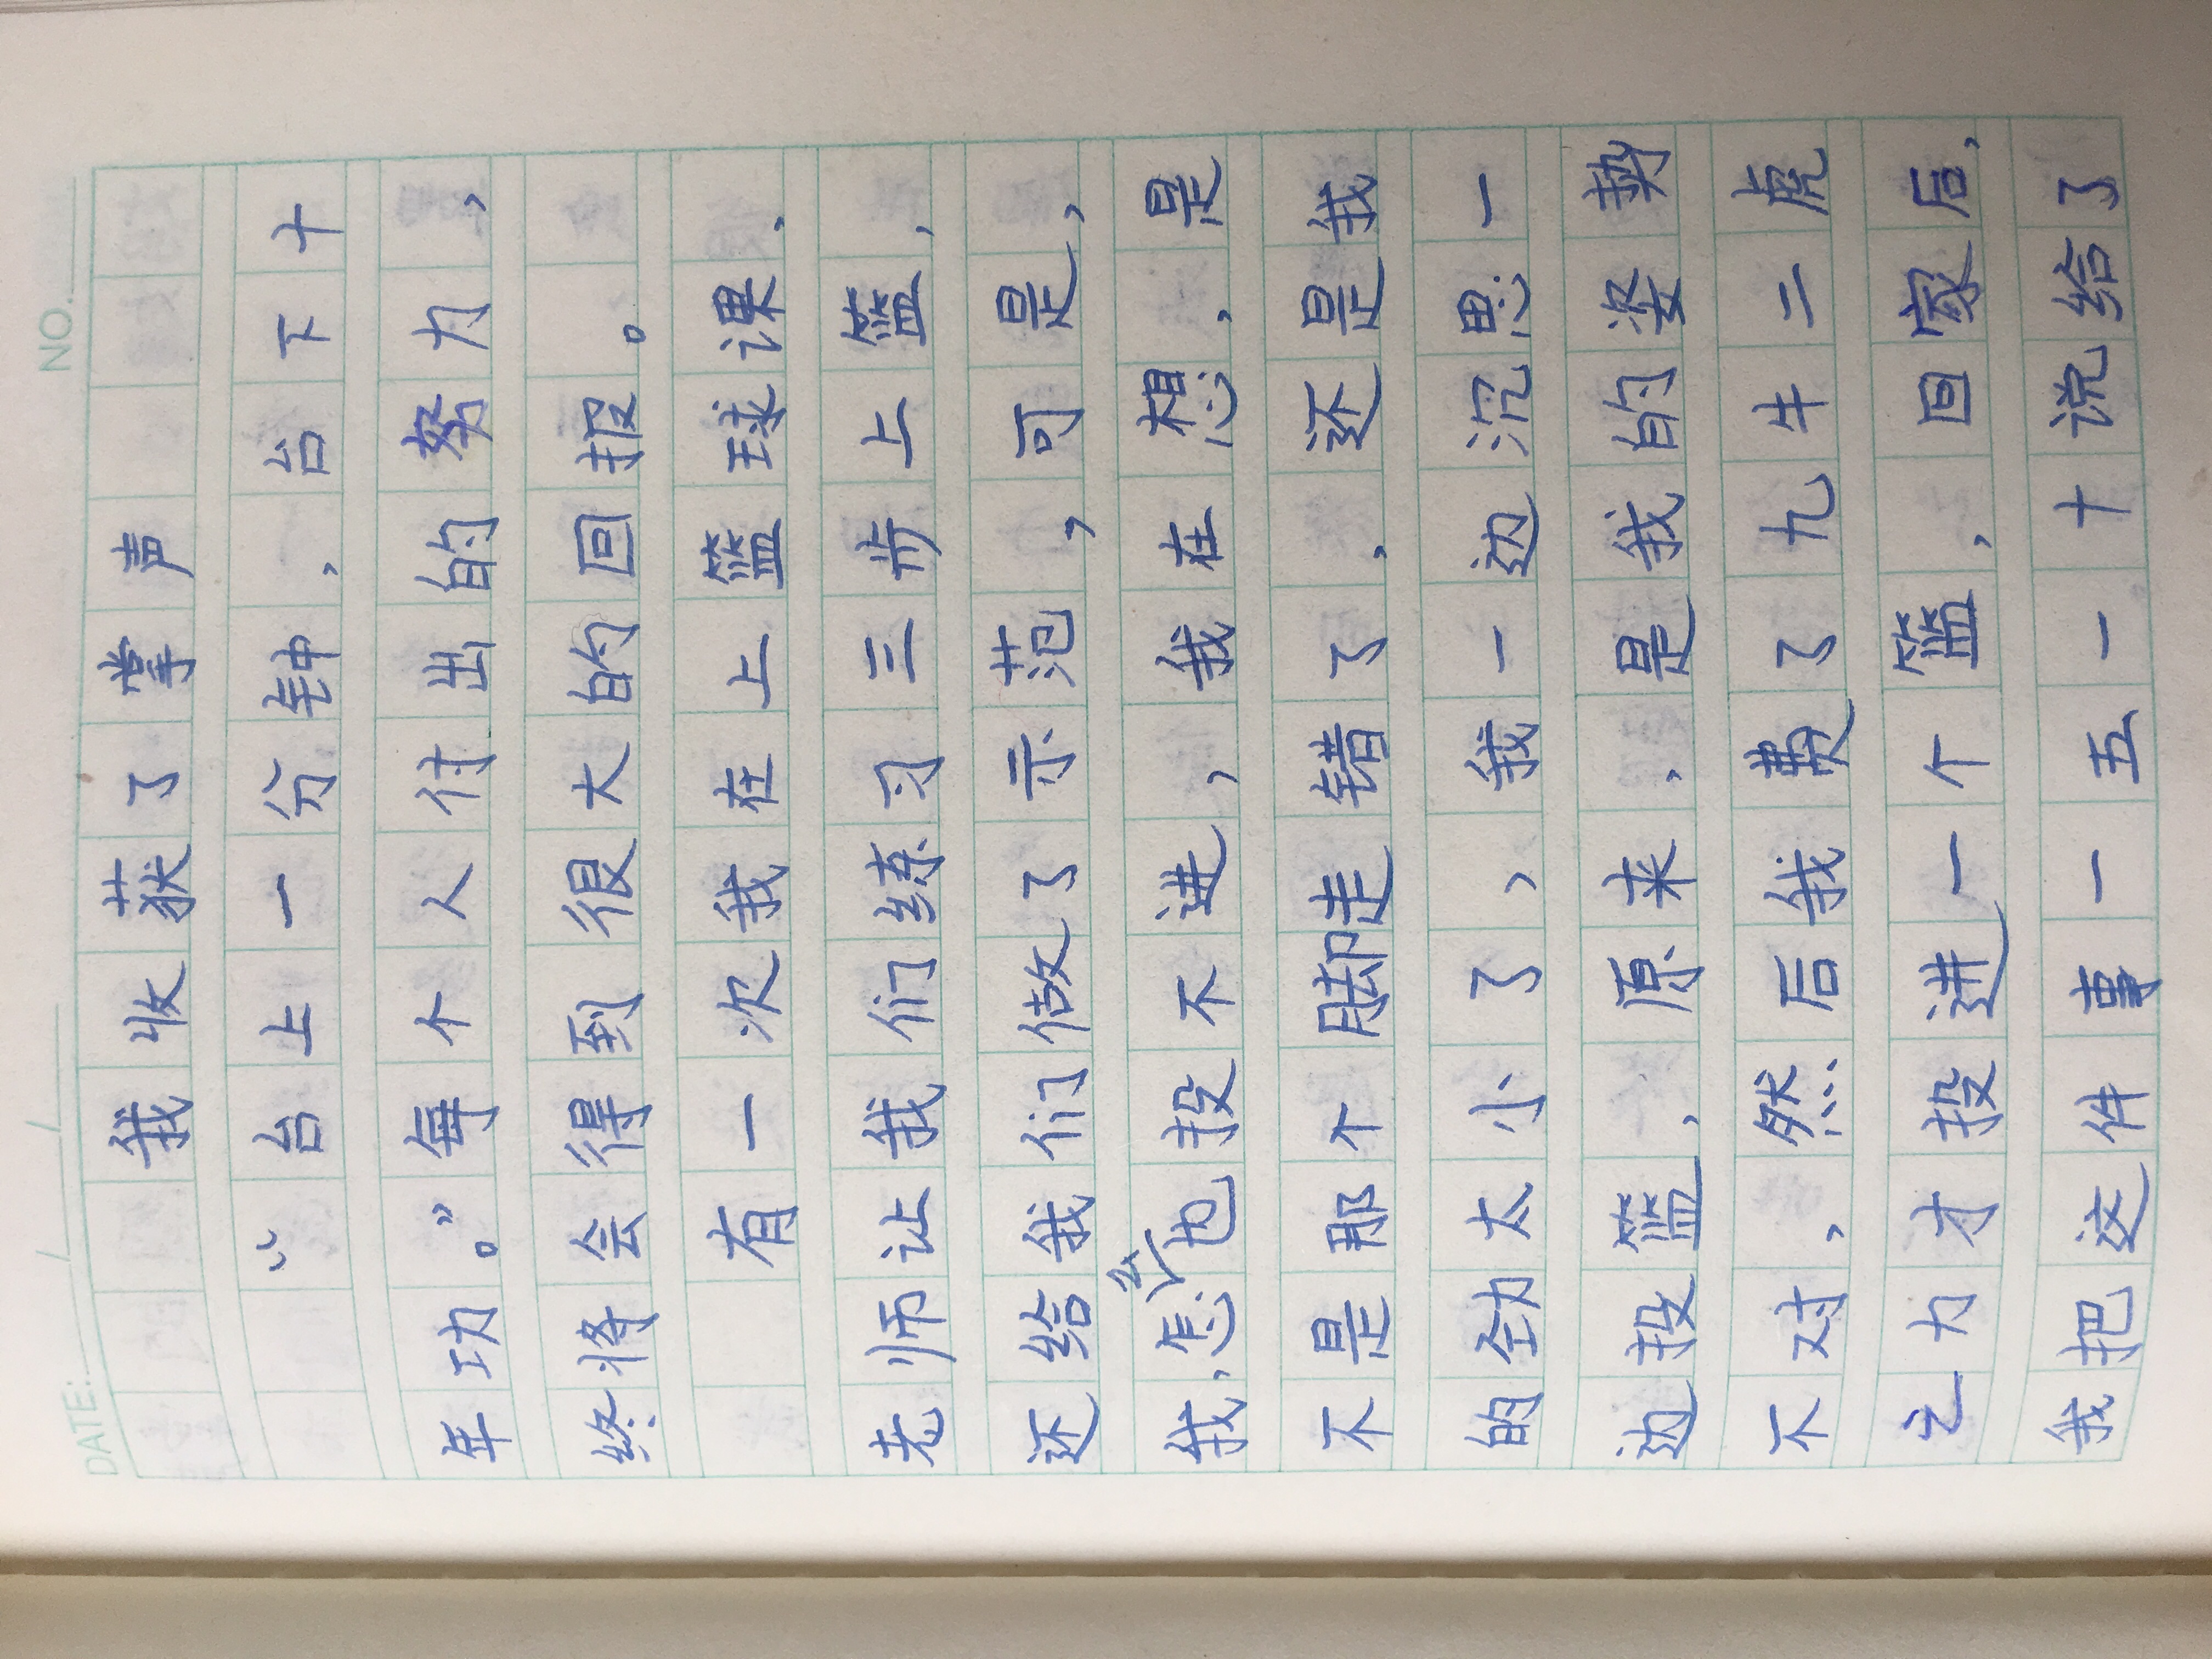 NO.
DATE: / /
我收获了掌声
“台上一分钟，台下十
年功。”每个人付出的努力，
终将会得到很大的回报。
有一次我在上篮球课，
老师让我们练习三步上篮，
还给我们做了示范，可是，
我，怎么也投不进，我在想，是
不是那个脚走错了，还是我
的劲太小了，我一边沉思一
边投篮，原来，是我的姿势
不对，然后我费了九牛二虎
之力才投进一个篮，回家后，
我把这件事一五一十说给了